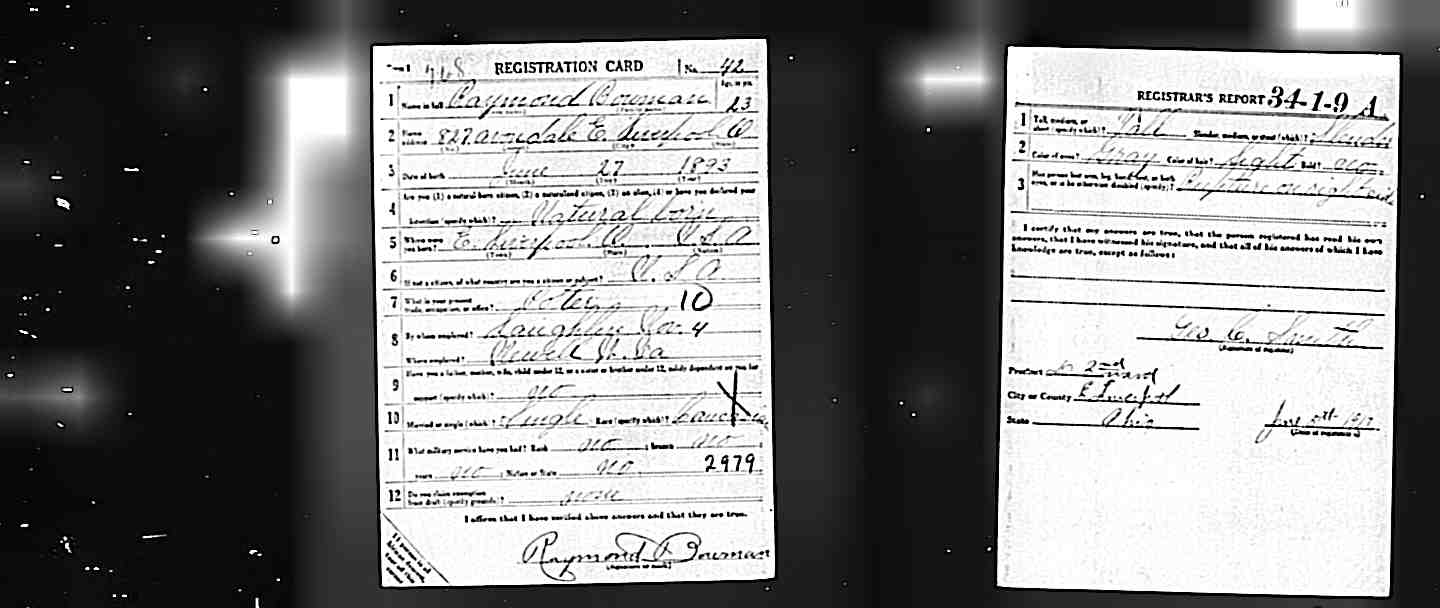 Form 1 768 REGISTRATION CARD No. 42
1 Name in full Raymond Bowman Age, in yrs. 23
2 Home address 827 Avondale E. Liverpool O
(No.) (Street) (City) (State)
3 Date of birth June 27 1893
(Month) (Day) (Year)
4 Are you (1) a natural born citizen, (2) a naturalized citizen, (3) an alien, (4) or have you declared your
intention (specify which)? Natural born
5 Where were you born? E. Liverpool O. U.S.A
(Town) (State) (Nation)
6 If not a citizen, of what country are you a citizen or subject? U.S.A.
7 What is your present trade, occupation, or office? Potter 10
8 By whom employed? Laughlin No. 4
Where employed? Newell W. Va
9 Have you a father, mother, wife, child under 12, or a sister or brother under 12, solely dependent on you for
support (specify which)? no
10 Married or single (which)? Single Race (specify which)? Caucasian
11 What military service have you had? Rank no ; branch no ;
years no ; Nation or State no. 2979
12 Do you claim exemption from draft (specify grounds)? none
I affirm that I have verified above answers and that they are true.
Raymond Bowman
(Signature or mark)
REGISTRAR'S REPORT 34-1-9 A
1 Tall, medium, or short (specify which)? Tall Slender, medium, or stout (which)? Slender
2 Color of eyes? Gray Color of hair? Light Bald? no.
3 Has person lost arm, leg, hand, foot, or both eyes, or is he otherwise disabled (specify)? Rupture on right side
I certify that my answers are true, that the person registered has read his own
answers, that I have witnessed his signature, and that all of his answers of which I have
knowledge are true, except as follows:
Geo. C. Smith
(Signature of registrar)
Precinct 2nd ward
City or County E Liverpool
State Ohio June 5th 1917
(Date of registration)